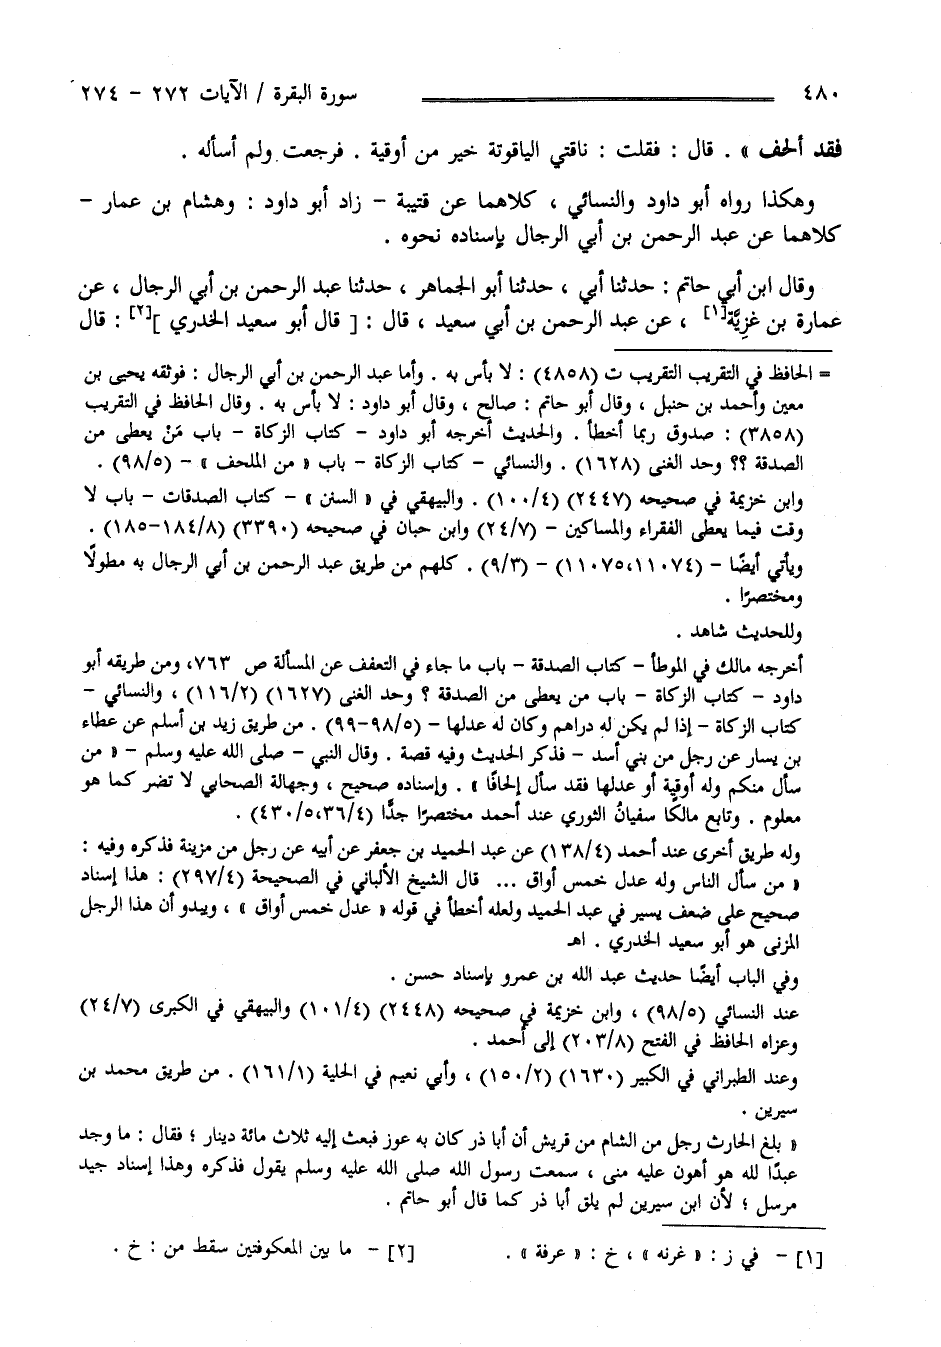 ٤٨٠ سورة البقرة / الآيات ٢٧٢ - ٢٧٤
فقد ألحف » . قال : فقلت : ناقتي الياقوتة خير من أوقية . فرجعت ولم أسأله .
وهكذا رواه أبو داود والنسائي ، كلاهما عن قتيبة - زاد أبو داود : وهشام بن عمار -
كلاهما عن عبد الرحمن بن أبي الرجال بإسناده نحوه .
وقال ابن أبي حاتم : حدثنا أبي ، حدثنا أبو الجماهر ، حدثنا عبد الرحمن بن أبي الرجال ، عن
عمارة بن غزِيَّة[١] ، عن عبد الرحمن بن أبي سعيد ، قال : [ قال أبو سعيد الخدري ][٢] : قال
= الحافظ في التقريب التقريب ت (٤٨٥٨) : لا بأس به . وأما عبد الرحمن بن أبي الرجال : فوثقه يحيى بن
معين وأحمد بن حنبل ، وقال أبو حاتم : صالح ، وقال أبو داود : لا بأس به . وقال الحافظ في التقريب
(٣٨٥٨) : صدوق ربما أخطأ . والحديث أخرجه أبو داود - كتاب الزكاة - باب مَنْ يعطى من
الصدقة ؟؟ وحد الغنى (١٦٢٨) . والنسائي - كتاب الزكاة - باب « من الملحف » - (٩٨/٥) .
وابن خزيمة في صحيحه (٢٤٤٧) (١٠٠/٤) . والبيهقي في « السنن » - كتاب الصدقات - باب لا
وقت فيما يعطى الفقراء والمساكين - (٢٤/٧) وابن حبان في صحيحه (٣٣٩٠) (١٨٤/٨-١٨٥) .
ويأتي أيضًا - (١١٠٧٥،١١٠٧٤) - (٩/٣) . كلهم من طريق عبد الرحمن بن أبي الرجال به مطولًا
ومختصرًا .
وللحديث شاهد .
أخرجه مالك في الموطأ - كتاب الصدقة - باب ما جاء في التعفف عن المسألة ص ٧٦٣، ومن طريقه أبو
داود - كتاب الزكاة - باب من يعطى من الصدقة ؟ وحد الغنى (١٦٢٧) (١١٦/٢) ، والنسائي -
كتاب الزكاة - إذا لم يكن له دراهم وكان له عدلها - (٩٨/٥-٩٩) . من طريق زيد بن أسلم عن عطاء
بن يسار عن رجل من بني أسد - فذكر الحديث وفيه قصة . وقال النبي - صلى الله عليه وسلم - « من
سأل منكم وله أوقية أو عدلها فقد سأل إلحافًا » . وإسناده صحيح ، وجهالة الصحابي لا تضر كما هو
معلوم . وتابع مالكًا سفيانُ الثوري عند أحمد مختصرًا جدًّا (٤٣٠/٥،٣٦/٤) .
وله طريق أخرى عند أحمد (١٣٨/٤) عن عبد الحميد بن جعفر عن أبيه عن رجل من مزينة فذكره وفيه :
« من سأل الناس وله عدل خمس أواق ... قال الشيخ الألباني في الصحيحة (٢٩٧/٤) : هذا إسناد
صحيح على ضعف يسير في عبد الحميد ولعله أخطأ في قوله « عدل خمس أواق » ، ويبدو أن هذا الرجل
المزنى هو أبو سعيد الخدري . اهـ
وفي الباب أيضًا حديث عبد الله بن عمرو بإسناد حسن .
عند النسائي (٩٨/٥) ، وابن خزيمة في صحيحه (٢٤٤٨) (١٠١/٤) والبيهقي في الكبرى (٢٤/٧)
وعزاه الحافظ في الفتح (٢٠٣/٨) إلى أحمد .
وعند الطبراني في الكبير (١٦٣٠) (١٥٠/٢) ، وأبي نعيم في الحلية (١٦١/١) . من طريق محمد بن
سيرين .
« بلغ الحارث رجل من الشام من قريش أن أبا ذر كان به عوز فبعث إليه ثلاث مائة دينار ؛ فقال : ما وجد
عبدًا لله هو أهون عليه منى ، سمعت رسول الله صلى الله عليه وسلم يقول فذكره وهذا إسناد جيد
مرسل ؛ لأن ابن سيرين لم يلق أبا ذر كما قال أبو حاتم .
[١] - في ز : « غرنه » ، خ : « عرفة » . [٢] - ما بين المعكوفتين سقط من : خ .